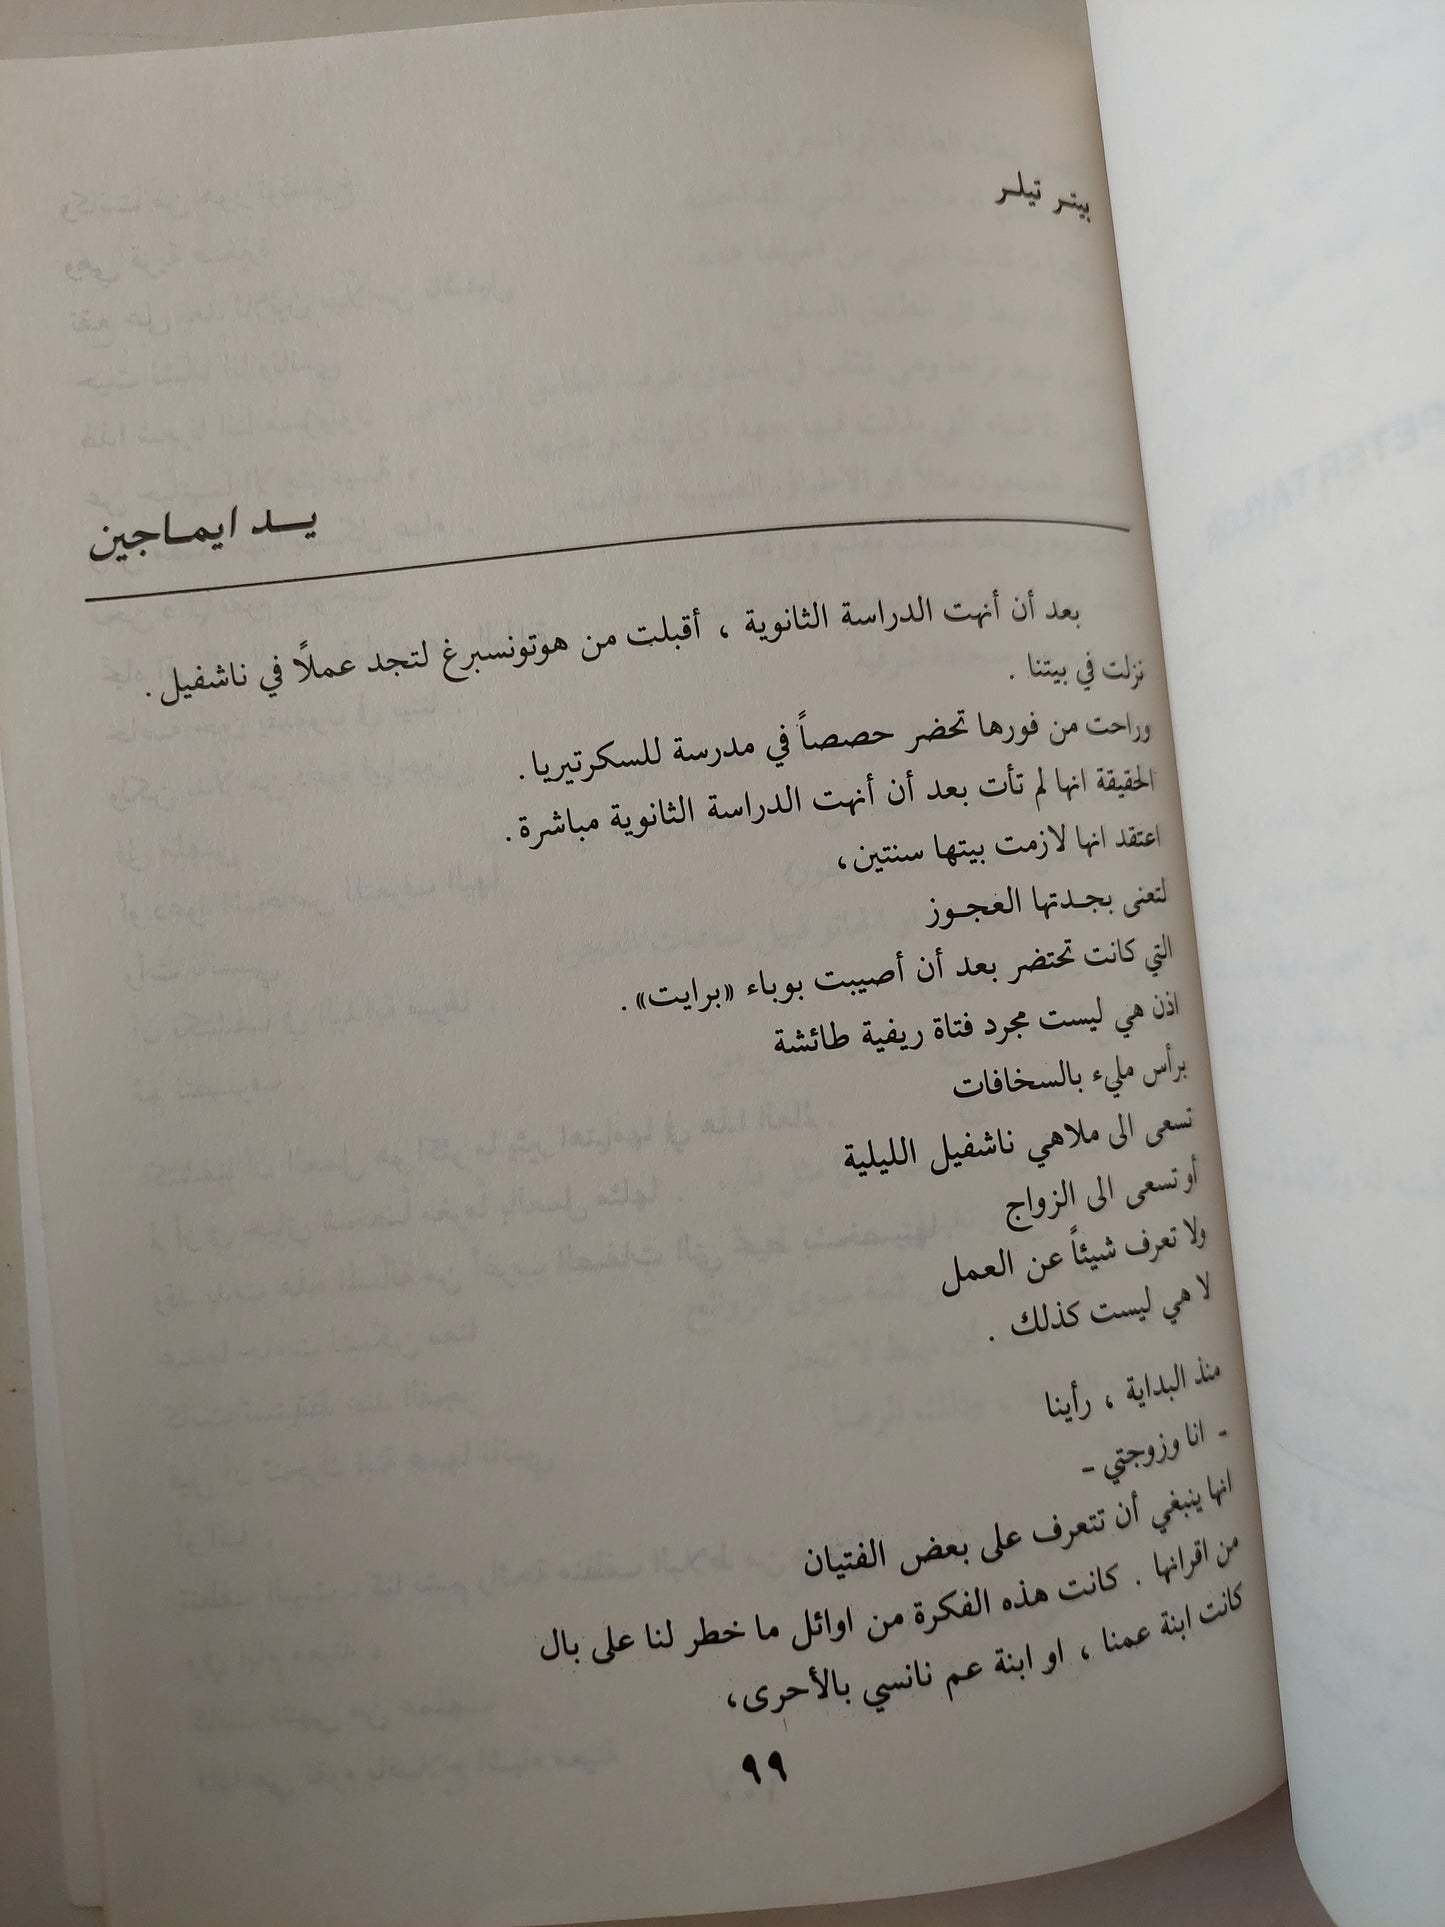 بيتر تيلر
يد ايماجين
بعد أن أنهت الدراسة الثانوية ، أقبلت من هوتونسبرغ لتجد عملاً في ناشفيل .
نزلت في بيتنا .
وراحت من فورها تحضر حصصاً في مدرسة للسكرتيريا .
الحقيقة انها لم تأت بعد أن أنهت الدراسة الثانوية مباشرة .
اعتقد انها لازمت بيتها سنتين ،
لتعنى بجدتها العجوز
التي كانت تحتضر بعد أن أصيبت بوباء «برايت» .
اذن هي ليست مجرد فتاة ريفية طائشة
برأس مليء بالسخافات
تسعى الى ملاهي ناشفيل الليلية
أو تسعى الى الزواج
ولا تعرف شيئاً عن العمل
لا هي ليست كذلك .
منذ البداية ، رأينا
- انا وزوجتي -
انها ينبغي أن تتعرف على بعض الفتيان
من اقرانها . كانت هذه الفكرة من اوائل ما خطر لنا على بال
كانت ابنة عمنا ، او ابنة عم نانسي بالأحرى ،
٩٩
PETER TAYLOR